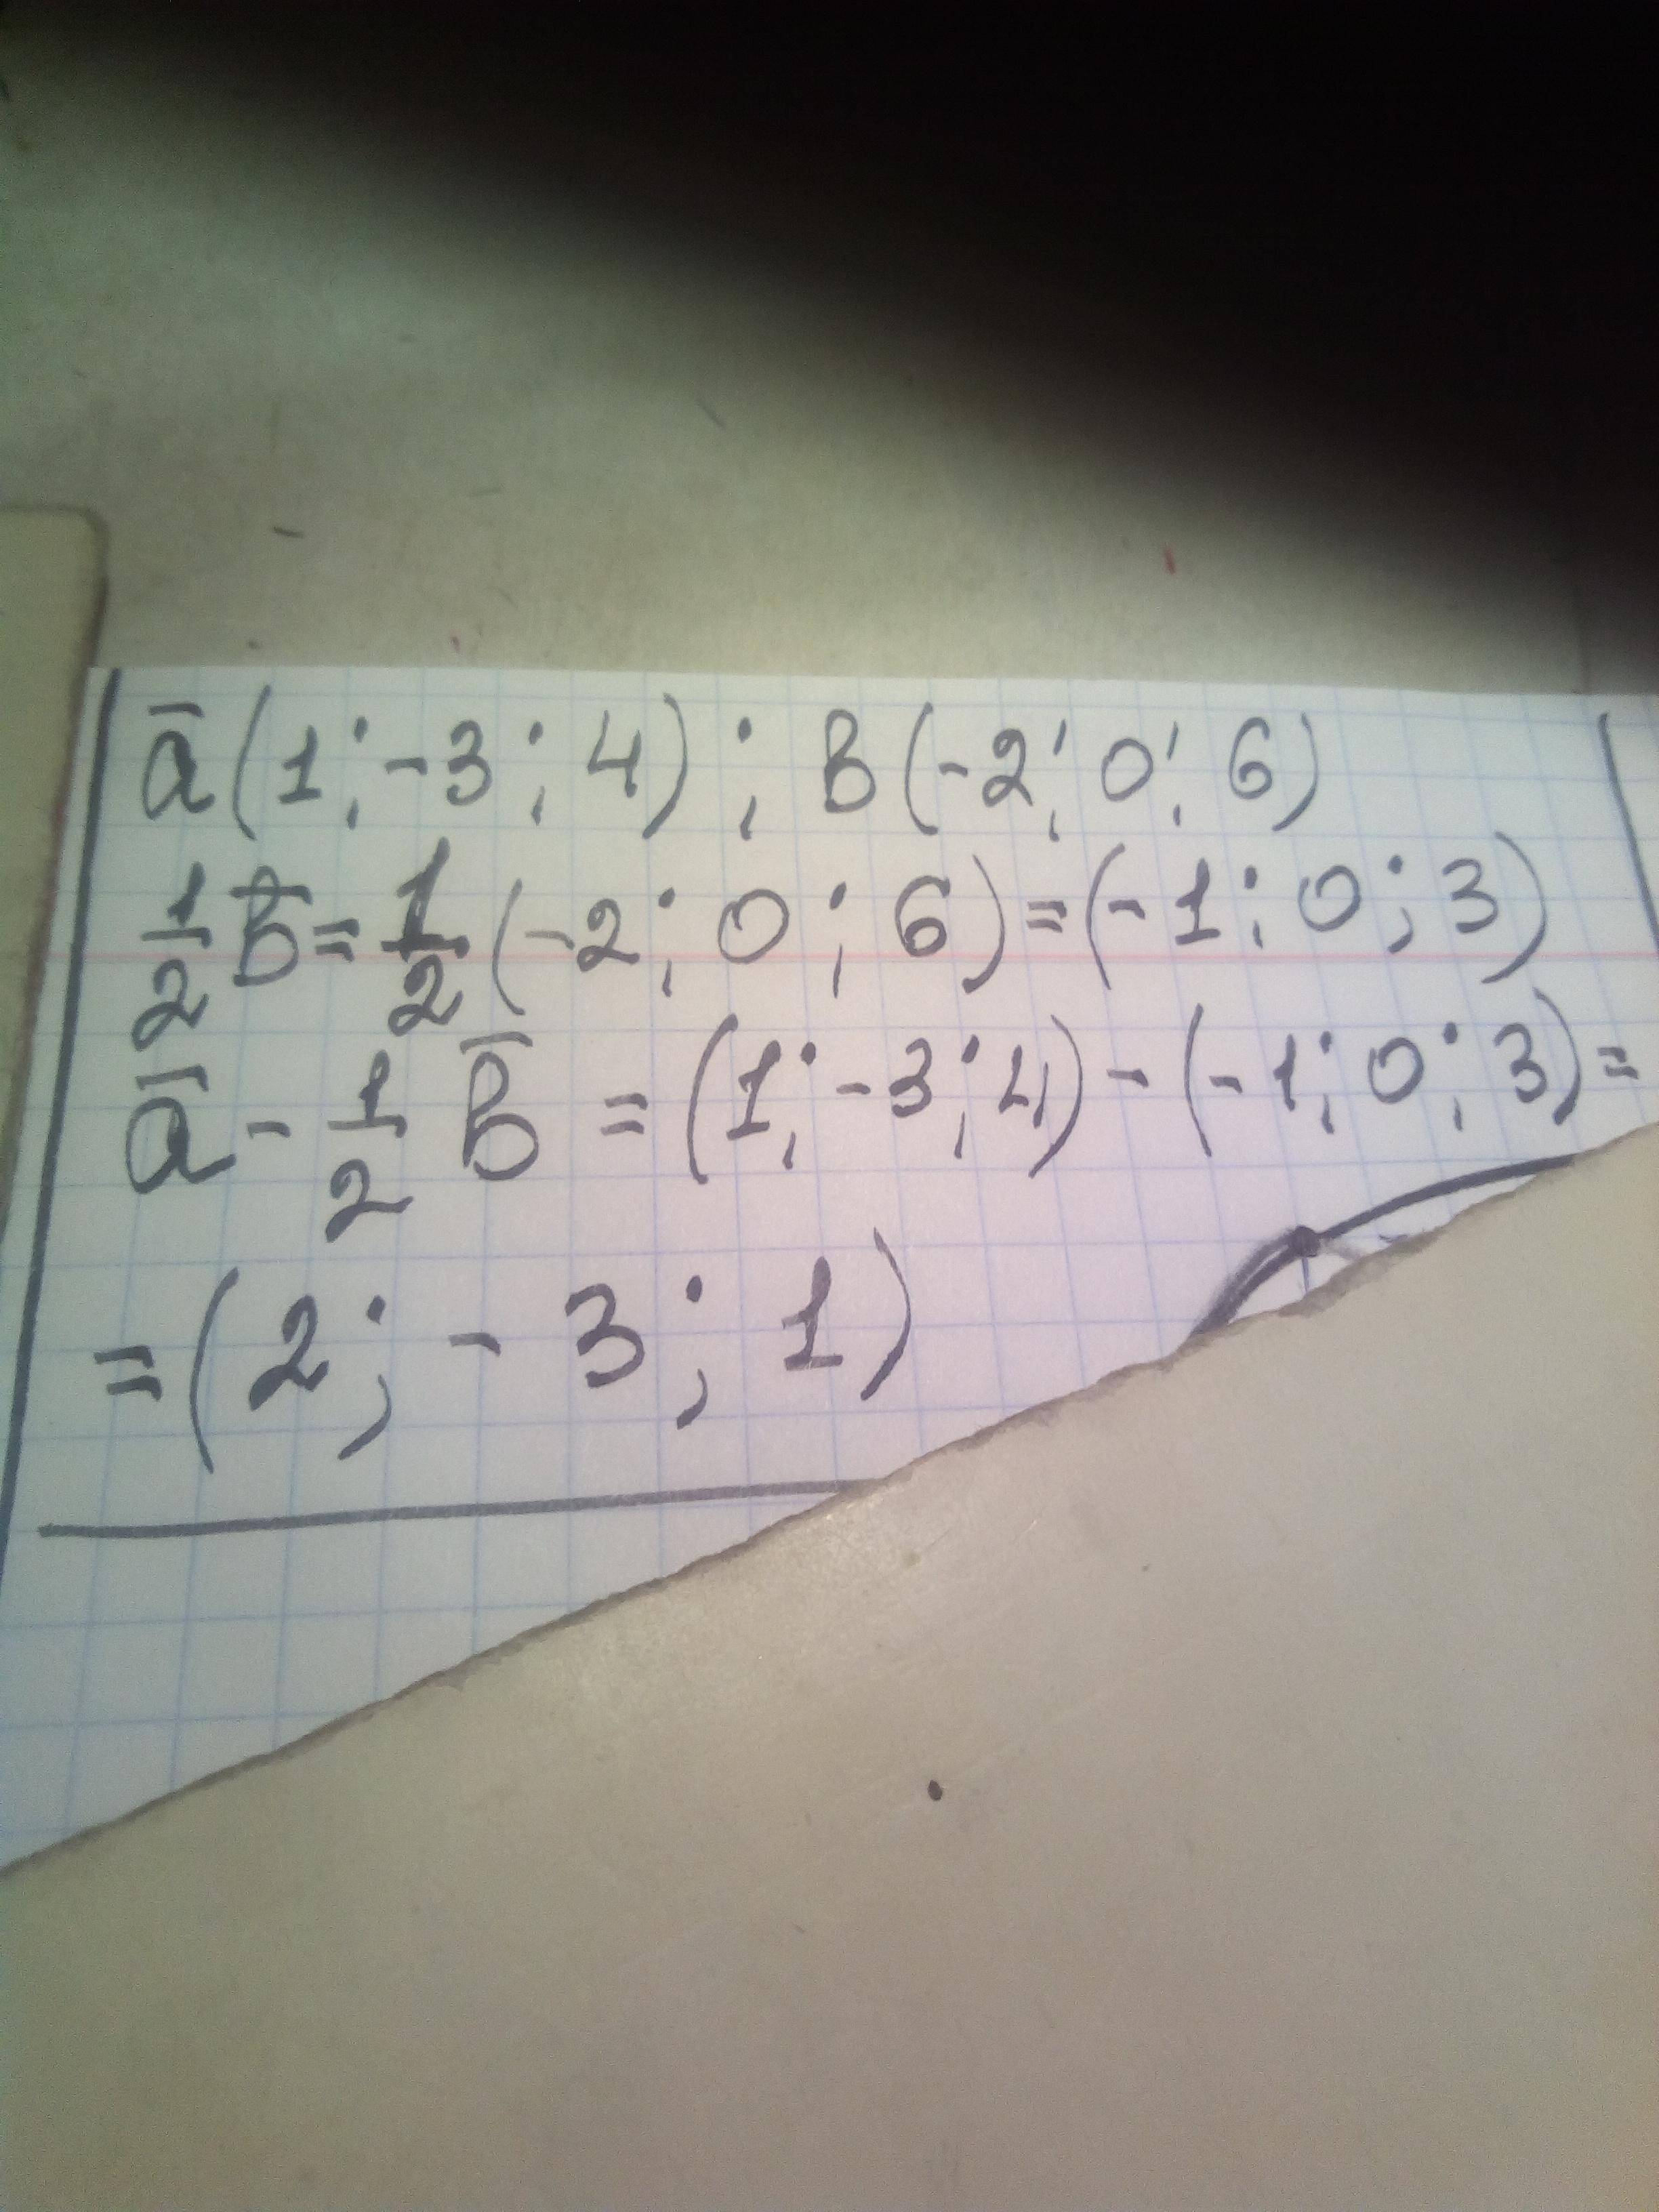 a̅(1; -3; 4); B(-2; 0; 6)
1/2 B̅ = 1/2 (-2; 0; 6) = (-1; 0; 3)
a̅ - 1/2 B̅ = (1; -3; 4) - (-1; 0; 3) =
= (2; -3; 1)